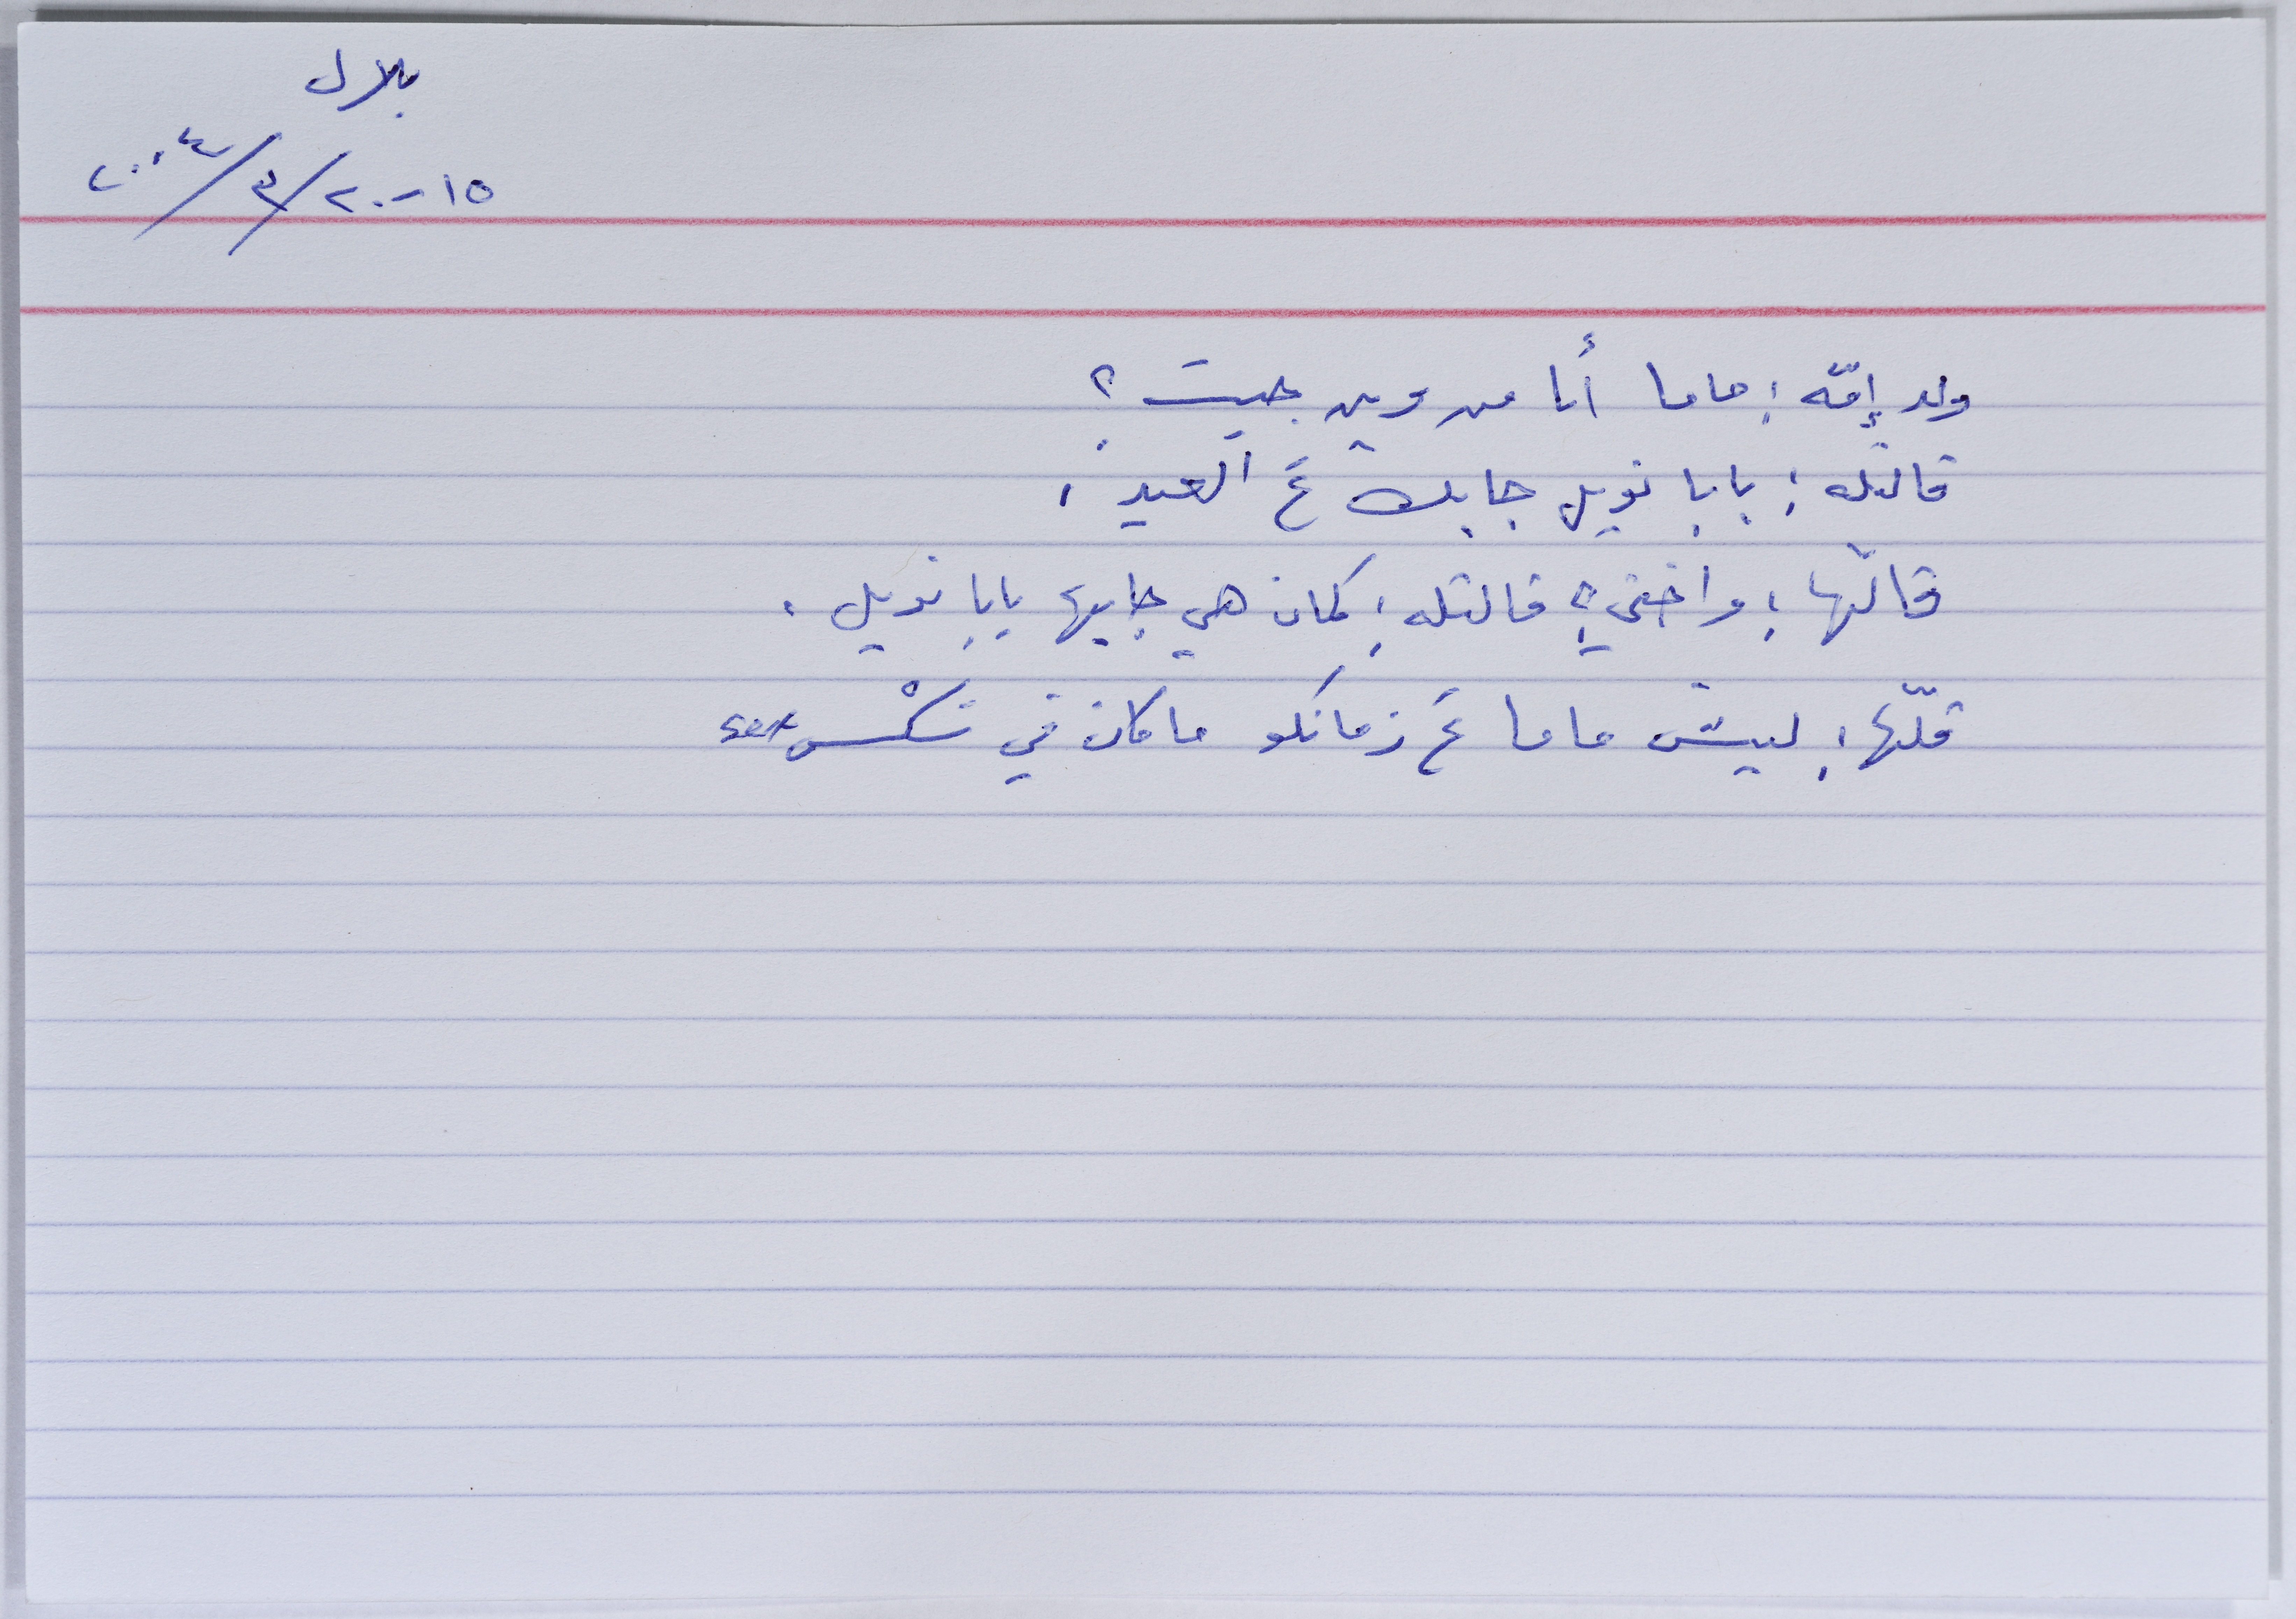 بلال
١٥-٢٠/٣/٢٠٠٤
ولد إمّه: ماما أنا من وين جيت؟
قالتله: بابا نويل جابك عَ العيد.
قالّها: واختي؟ قالتله: كمان هي جابها بابا نويل.
قلّها: ليش ماما عَ زمانكو ما كان في سكْس sex